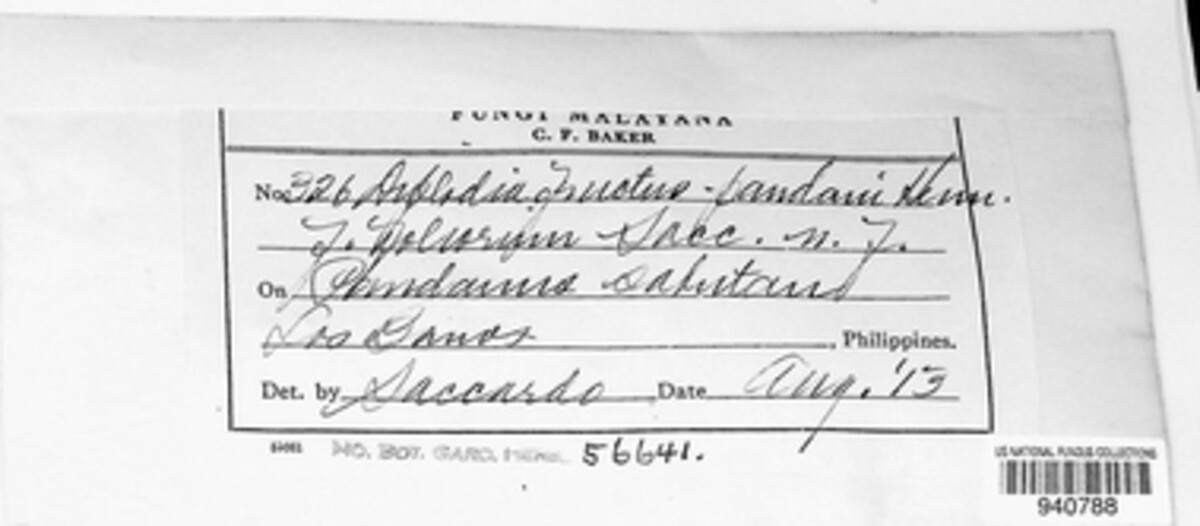 FUNGI MALAYANA
C. F. BAKER
No. 326 Diplodia fructus-pandani Henn.
f. foliorum Sacc. n. f.
On Pandanus sabutans
Los Banos, Philippines.
Det. by Saccardo, Date Aug. '13
MO. BOT. GARD. HERB. 56641.
US NATIONAL FUNGUS COLLECTIONS
940788